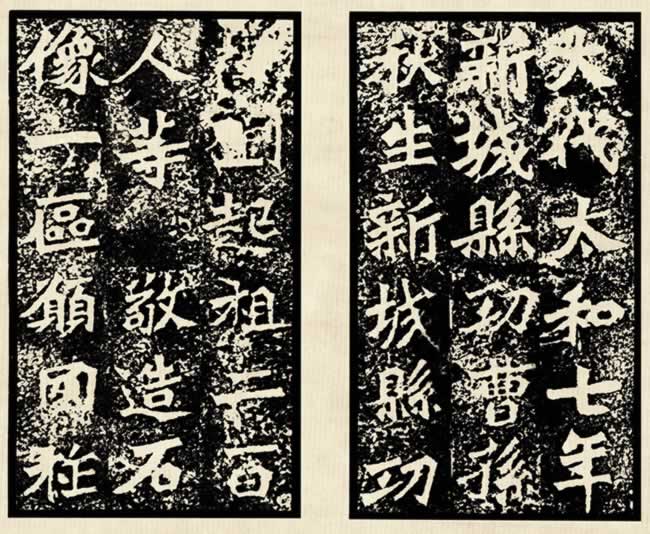 大代太和七年
新城縣功曹孫
秋生新城縣功
劉起祖二百
人等敬造石
像一區願國祚